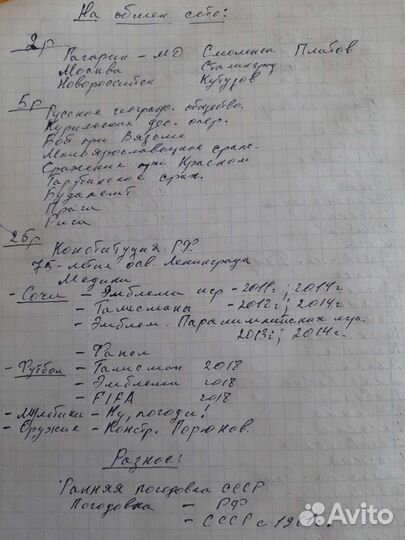 На обмен есть:
2р
Гагарин - МД Смоленск Платов
Москва Сталинград
Новороссийск Кутузов
5р
Русское географ. общество.
Курильская дес. опер.
Бой при Вязьме
Малоярославецкое сраж.
Сражение при Красном
Тарутинское сраж.
Будапешт
Прага
Рига
25р
Конституция РФ
75-летие осв. Ленинграда
Медики
- Сочи - Эмблема игр - 2011г; 2014г
- Талисманы - 2012г; 2014г
- Эмблем. Паралимпийских игр.
2013г; 2014г.
- Факел
- Футбол - Талисман 2018
- Эмблема 2018
- FIFA 2018
- Мультики - Ну, погоди!
- Оружие - Констр. Горюнов.
Разное:
Ранняя погодовка СССР
Погодовка - РФ
- СССР с
Avito